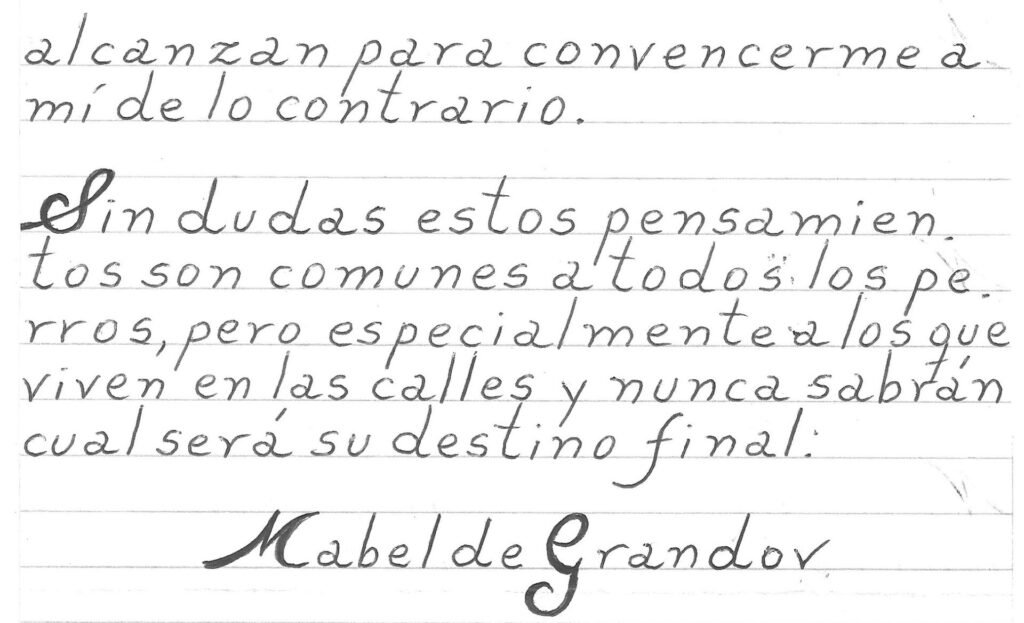 alcanzan para convencerme a
mí de lo contrario.
Sin dudas estos pensamien.
tos son comunes a todos los pe.
rros, pero especialmente a los que
viven en las calles y nunca sabrán
cual será su destino final.
Mabel de Grandov